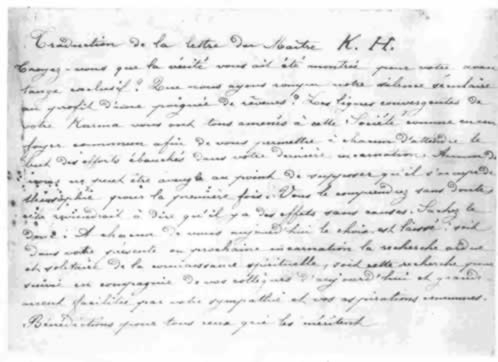 Traduction de la lettre du Maître K. H.
Croyez-vous que la vérité vous ait été montrée pour votre avan
tage exclusif? Que nous ayons rompu notre silence séculaire
au profit d'une poignée de rêveurs? Les lignes convergentes de
votre Karma vous ont tous amenés à cette Société comme en un
foyer commun afin de vous permettre à chacun d'attendre le
but des efforts ébauchés dans votre dernière incarnation. Aucun de
vous ne peut être aveugle au point de supposer qu'il s'occupe de
théosophie pour la première fois. Vous le comprendrez sans doute
cela reviendrait à dire qu'il y a des effets sans causes. Sachez le
donc: à chacun de vous aujourd'hui le choix est laissé: soit
dans votre présente ou prochaine incarnation la recherche ardue
et solitaire de la connaissance spirituelle, soit cette recherche pour
suivie en compagnie de vos collègues d'aujourd'hui et grande
ment facilitée par votre sympathie et vos aspirations communes.
Bénédictions pour tous ceux qui les méritent